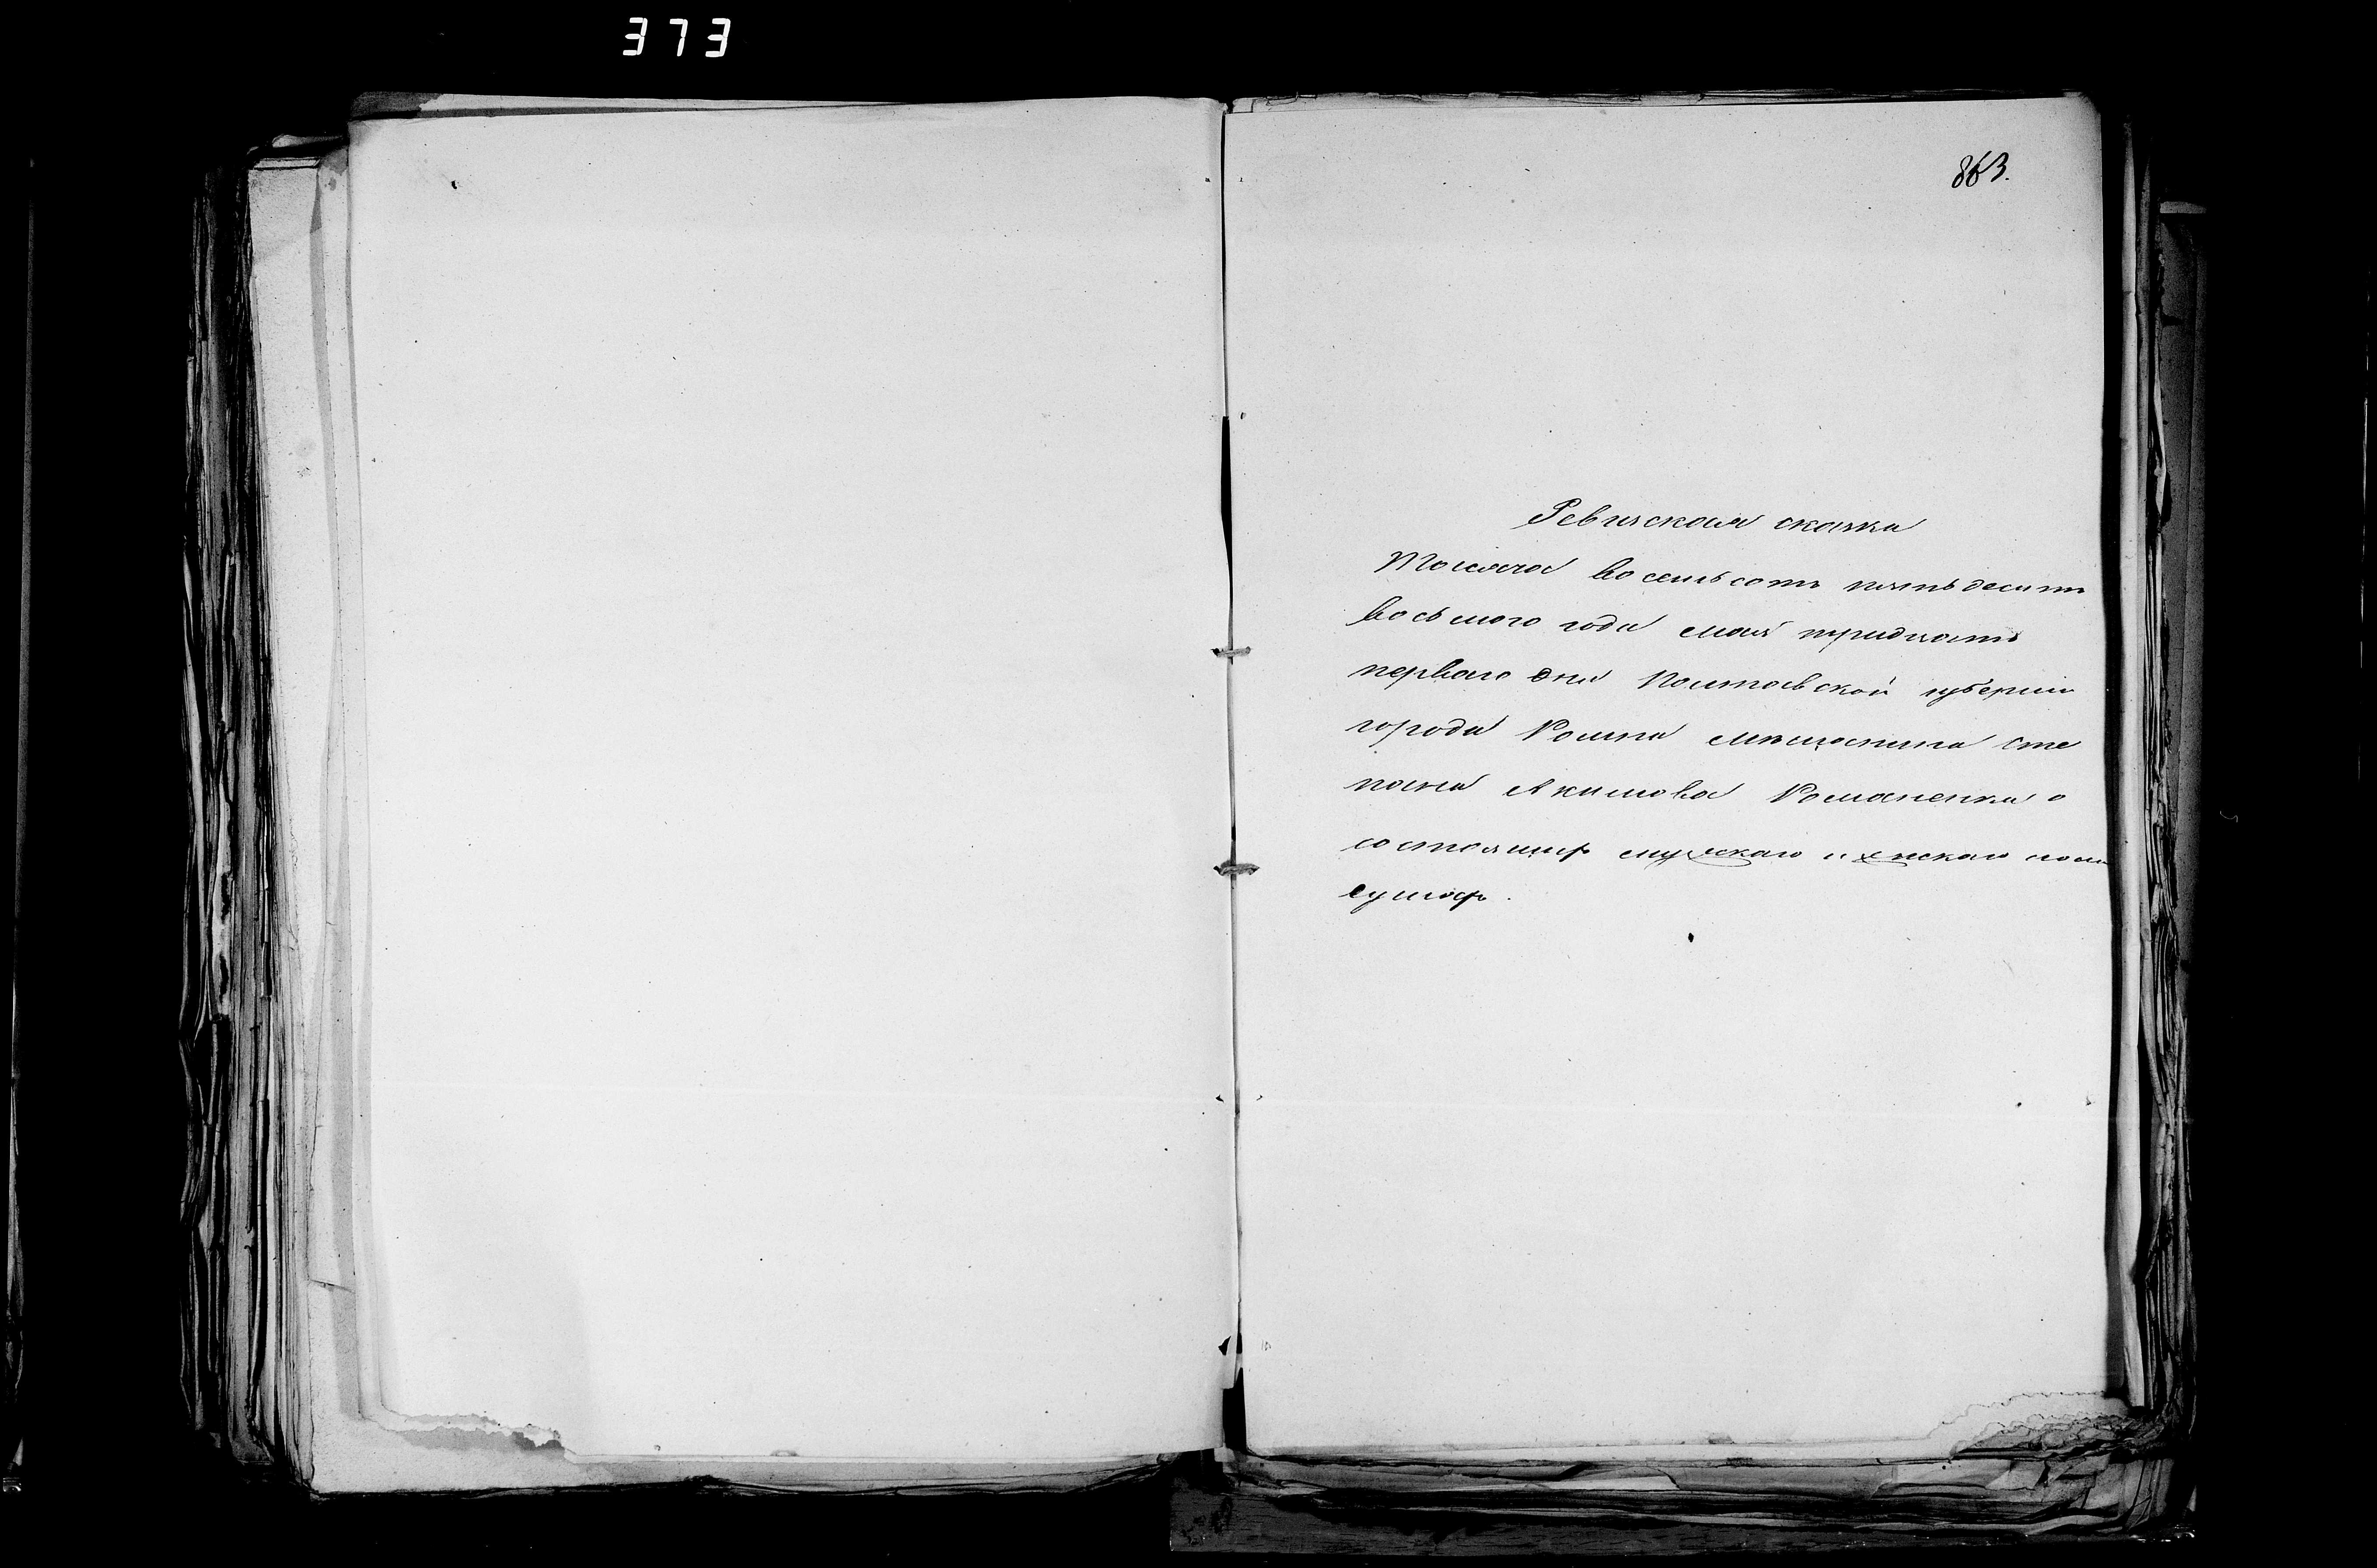 373
863.
Ревизская сказка
Тысяча восемьсотъ пятьдесятъ
восьмого года мая тридцать
перваго дня Полтавской губерніи
города Ромна мѣщанина Сте
пана Акимова Романенка о
состоящихъ мужскаго и женскаго пола
душахъ.